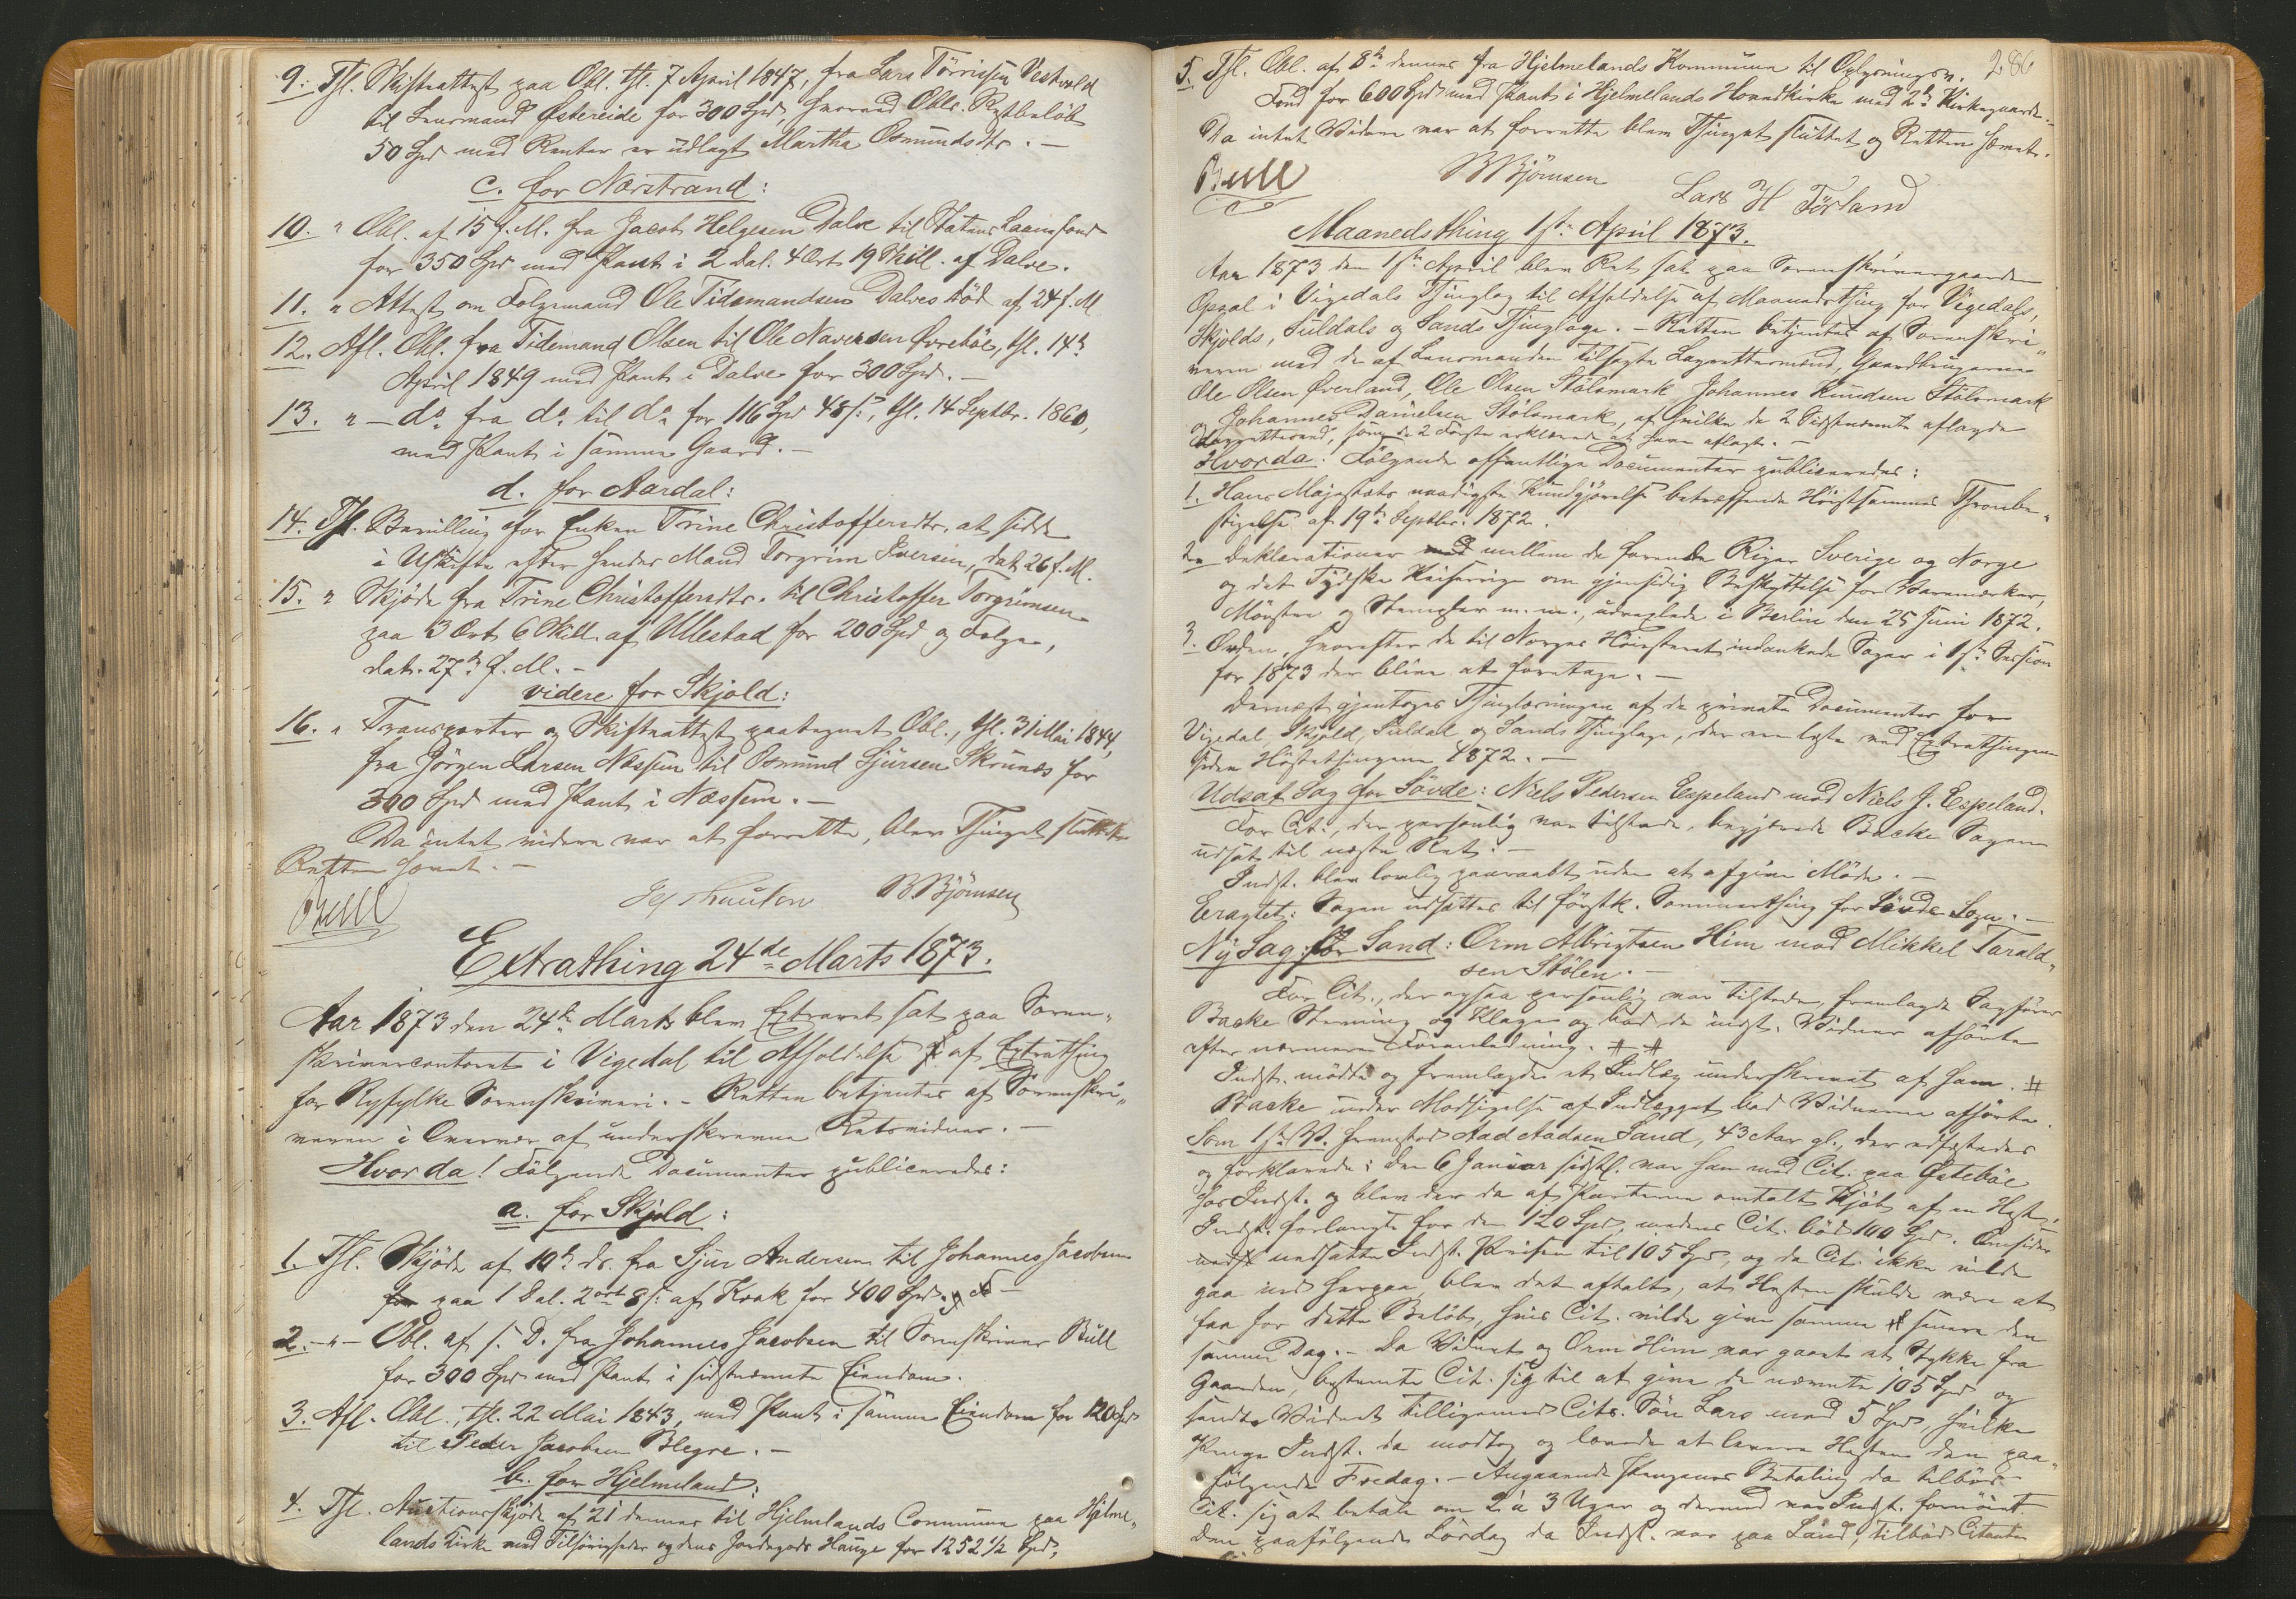 9. THl. Skifteattest paa Obl. thl. 7 April 1847, fra Lars Törrisen Vestvold
til Lensmand Østereide for 300 Spd, hvorved Obls. Restbeløb
50 Spd med Renter er udlagt Martha Osmundsdtr. –
c. for Nærstrand:
10. " Obl. af 15 f. M. fra Jacob Helgesen Dalve til Statens Laanefond
for 350 Spd med Pant i 2 Dal. 4 Ort 19 Skill. af Dalve.
11. " Attest om Folgemand Ole Tidemandsen Dalves död af 24 f. M
12. Afl. Obl. fra Tidemand Olsen til Ole Naversen Øvreböe, thl. 14de
April 1849 med Pant i Dalve for 300 Spd. –
13. " – do fra do til do for 116 Spd 48 s:, thl. 14 Septbr. 1860,
med Pant i samme Gaard. –
d. for Aardal:
14. Thl. Bevilling for Enken Trine Christoffersdtr. at sidde
i Uskifte efter hendes Mand Torgrim Iversen, dat 26 f. M.
15. " Skjöde fra Trine Christoffersdtr. til Christoffer Torgrimsen
paa 3 Ort 6 Skill. af Ullestad for 200 Spd og Folge,
dat. 27de f. M. –
videre for Skjold:
16. " Transporter og Skifteattest paategnet Obl., thl. 31 Mai 1844,
fra Jörgen Larsen Næssem til Osmund Sjursen Skrunes for
300 Spd med Pant i Næssem. –
Da intet videre var at forrette, blev Thinget sluttet
Retten hævet. –
Bull BBjörnsen
Extrathing 24de Marts 1873.
Aar 1873 den 24de Marts blev Extraret sat paa Soren„
skrivercontoret i Vigedal til Afholdelse af Extrathing
for Ryfylke Sorenskriveri. – Retten betjentes af Sorenskri„
veren i Overvær af underskrevne Retsvidner. –
Hvorda! Fölgende Documenter publiceredes:
a. for Skjold:
1. Thl. Skjöde af 10de ds. fra Sjur Andersen til Johannes Jacobsen
for paa 1 Dal. 2 ort 8 s: af Krak for 400 Spd. og F –
2. – " – Obl. af s. D. fra Johannes Jacobsen til Sorenskriver Bull
for 300 Spd med Pant i sidstnævnte Eiendom.
3. Afl. Obl., thl. 22 Mai 1843, med Pant i samme Eiendom for 120 Spd
til Peder Jacobsen Blegre. –
b. for Hjelmeland:
4. Thl. Auctionsskjöde af 21 dennes til Hjelmelands Commune paa Hjelme„
lands Kirke med Tilhörigheder og dens Jordegods Hauge for 1252 1/2 Spd,
286
5. Thl. Obl. af 8de dennes fra Hjelmelands Kommune til Oplysningsv.
Fond for 600 Spd med Pant i Hjelmelands Hovedkirke med 2de Kirkegaarde. –
Da intet Videre var at forrette blev Thinget sluttet og Retten hævet.
Bull BBjörnsen Lars H Förland
Maanedsthing 1ste April 1873.
Aar 1873 den 1ste April blev Ret sat paa Sorenskrivergaarden
Opsal i Vigedals Thinglag til Afholdelse af Maanedsthing for Vigedals,
Skjolds, Suldals og Sands Thinglage. – Retten betjentes af Sorenskri„
veren med de af Lensmanden tilsagte Lagrettemænd, Gaardbrugerne
Ole Olsen Øverland, Ole Olsen Stölsmark Johannes Knudsen Stölsmark
og Johannes Danielsen Stölsmark, af hvilke de 2 Sidstnævnte aflagde
Lagretteeed, som de 2 Förste erklærede at have aflagt. –
Hvorda! Fölgende offentlige Documenter publiceredes:
1. Hans Majestæts naadigste Kundgjörelse betræffende Höistsammes Thronbe„
stigelse af 19de Septbr. 1872.
2. Deklarationer med mellem de forenede Riger Sverige og Norge
og det Tydske Keiserrige om gjensidig Beskyttelse for Varemærker,
Mönster og Stempler m. m., udvexlede i Berlin den 25 Juni 1872.
3. Orden, hvorefter de til Norges Höiesteret indankede Sager i 1ste Session
for 1873 der blive at foretage. –
Dernæst gjentoges Thinglæsningen af de private Documenter for
Vigedal, Skjold, Suldal og Sands Thinglage, der ere læste ved Extrathingene
siden Höstethingene 1872. –
Udsat Sag for Sövde: Niels Pedersen Espeland mod Niels J. Espeland.
For Cit., der personlig var tilstede, begjærede Backe Sagen
udsat til næste Ret. –
Indst. blev lovlig paaraabt uden at afgive Möde. –
Eragtet: Sagen udsættes til förstk. Sommerthing for Sövde Sogn. –
Ny Sag: for Sand: Orm Albrigtsen Him mod Mikkel Tarald„
sen Stölen. –
For Cit., der ogsaa personlig var tilstede, fremlagde Sagförer
Backe Stevning og Klage og bad de indst. Vidner afhörte
efter nærmere Foranledning. # #
Indst. mödte og fremlagde et Indlæg underskrevet af ham. #
Backe under Modsigelse af Indlægget bad Vidnerne afhörte.
Som 1ste V. fremstod Aad Aadsen Sand, 43 Aar gl., der edfæstedes
og forklarede: den 6 Januar sidstl. var han med Cit. paa Østeböe
hos Indst. og blev der da af Parterne omtalt Kjöb af en Hest.
Indst. forlangte for den 120 Spd, medens Cit. böd 100 Spd. Omsider
nedsatte Indst. Prisen til 105 Spd, og da Cit. ikke vilde
gaa ind herpaa, blev det aftalt, at Hesten skulde være at
faa for dette Belöb, hvis Cit. vilde give samme senere den
samme Dag. – Da Vidnet og Orm Him var gaaet et Stykke fra
Gaarden, bestemte Cit. sig til at give de nævnte 105 Spd og
sendte Vidnet tilligemed Cits. Sön Lars med 5 Spd, hvilke
Penge Indst. da modtog og lovede at levere Hesten den paa„
fölgende Fredag. – Angaaende Pengenes Betaling da tilböd
Cit. sig at betale om 2 à 3 Uger og dermed var Indst. fornöiet.
Den paafölgende Lördag da Indst. var paa Sand, tilböd Citanten